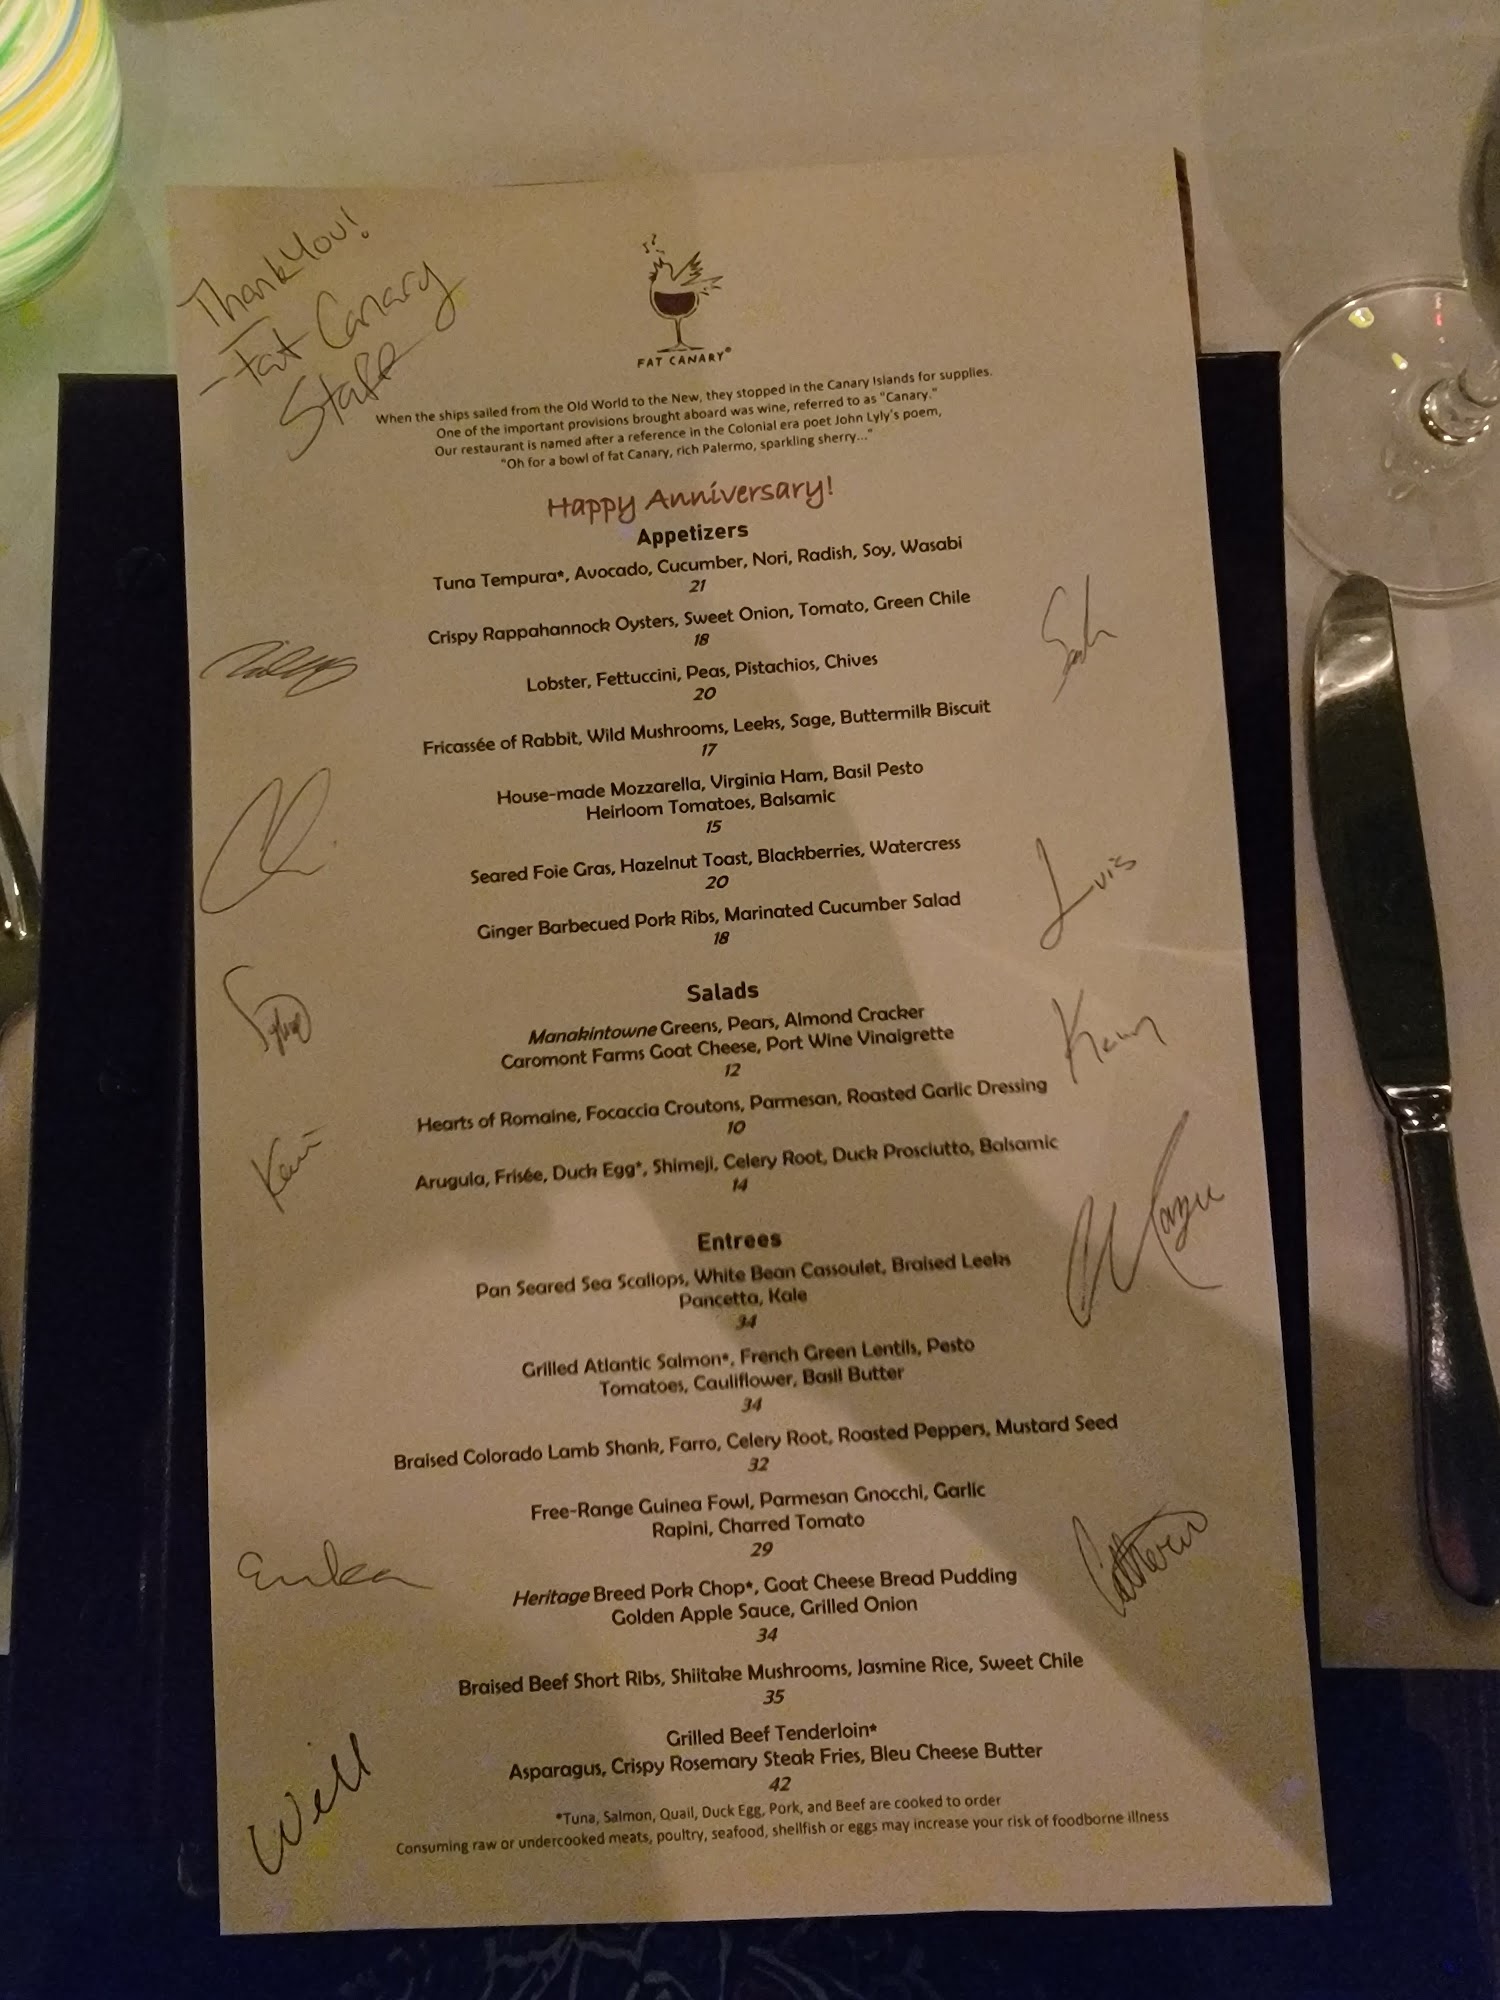 Thank You!
- Fat Canary
Staff
FAT CANARY®
When the ships sailed from the Old World to the New, they stopped in the Canary Islands for supplies.
One of the important provisions brought aboard was wine, referred to as "Canary."
Our restaurant is named after a reference in the Colonial era poet John Lyly's poem,
"Oh for a bowl of fat Canary, rich Palermo, sparkling sherry..."
Happy Anniversary!
Appetizers
Tuna Tempura*, Avocado, Cucumber, Nori, Radish, Soy, Wasabi
21
Crispy Rappahannock Oysters, Sweet Onion, Tomato, Green Chile
18
Lobster, Fettuccini, Peas, Pistachios, Chives
20
Fricassée of Rabbit, Wild Mushrooms, Leeks, Sage, Buttermilk Biscuit
17
House-made Mozzarella, Virginia Ham, Basil Pesto
Heirloom Tomatoes, Balsamic
15
Seared Foie Gras, Hazelnut Toast, Blackberries, Watercress
20
Luis
Ginger Barbecued Pork Ribs, Marinated Cucumber Salad
18
Salads
Manakintowne Greens, Pears, Almond Cracker
Caromont Farms Goat Cheese, Port Wine Vinaigrette
12
Hearts of Romaine, Focaccia Croutons, Parmesan, Roasted Garlic Dressing
10
Arugula, Frisée, Duck Egg*, Shimeji, Celery Root, Duck Prosciutto, Balsamic
14
Entrees
Pan Seared Sea Scallops, White Bean Cassoulet, Braised Leeks
Pancetta, Kale
34
Grilled Atlantic Salmon*, French Green Lentils, Pesto
Tomatoes, Cauliflower, Basil Butter
34
Braised Colorado Lamb Shank, Farro, Celery Root, Roasted Peppers, Mustard Seed
32
Free-Range Guinea Fowl, Parmesan Gnocchi, Garlic
Rapini, Charred Tomato
29
Heritage Breed Pork Chop*, Goat Cheese Bread Pudding
Golden Apple Sauce, Grilled Onion
34
Braised Beef Short Ribs, Shiitake Mushrooms, Jasmine Rice, Sweet Chile
35
Grilled Beef Tenderloin*
Asparagus, Crispy Rosemary Steak Fries, Bleu Cheese Butter
42
Will
*Tuna, Salmon, Quail, Duck Egg, Pork, and Beef are cooked to order
Consuming raw or undercooked meats, poultry, seafood, shellfish or eggs may increase your risk of foodborne illness